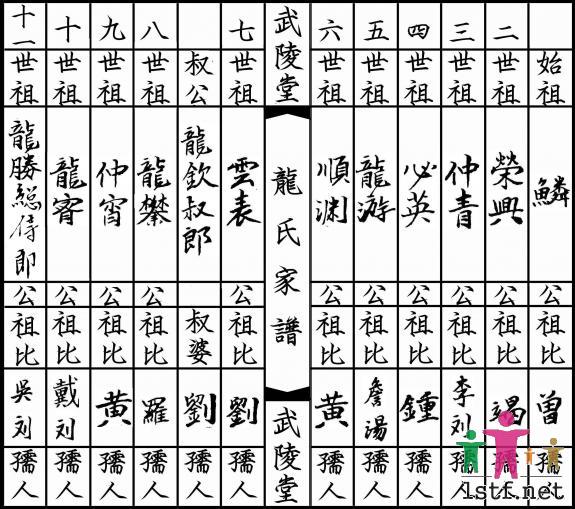 始祖 鱗 公祖比 曾孺人
二世祖 榮興 公祖比 竭孺人
三世祖 仲青 公祖比 李刘孺人
四世祖 必英 公祖比 鍾孺人
五世祖 龍游 公祖比 詹湯孺人
六世祖 順渊 公祖比 黄孺人
武陵堂 龍氏家譜 武陵堂
七世祖 雲表 公祖比 劉孺人
叔公 龍欽叔郎 叔婆 劉孺人
八世祖 龍攀 公祖比 羅孺人
九世祖 仲宵 公祖比 黄孺人
十世祖 龍寄 公祖比 戴刘孺人
十一世祖 龍勝總侍郎 公祖比 吳刘孺人
1stf.net